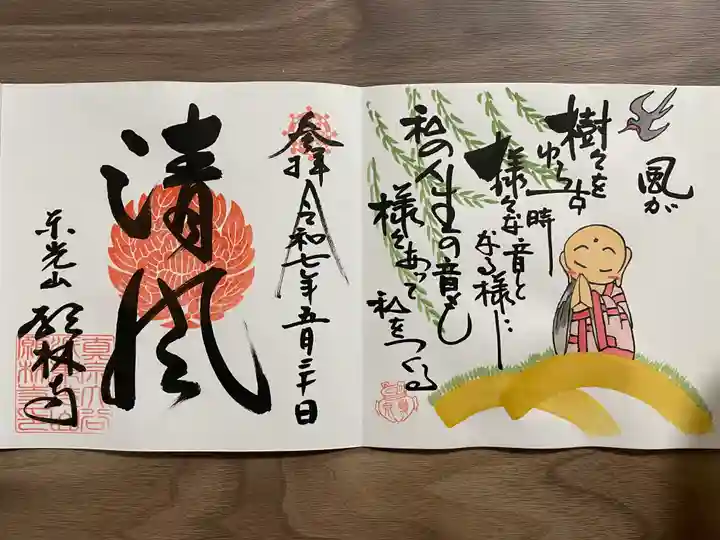 風が
樹々を
ゆらす
時
様々な音と
なる様に
私の人生の音も
様々あって
私をつくる
奉拝
令和七年五月二十日
清風
光山
林寺